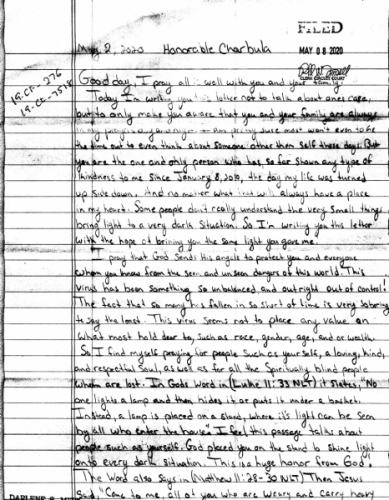 FILED
May 8, 2020 Honorcible Charbula
MAY 08 2020
19-CF-276
19-CF-7518
CLERK CIRCUIT COURT
Good day, I pray all is well with you and your family.
Today I'm writing you this letter not to talk about ones case,
but to only make you aware that you and your family are always
in my prayers day and night. I am pretty sure most won't even to be
the time out to even think about someone other them self these days. But
you are the one and only person who has, so far shown any type of
Kindness to me since January 8, 2019, the day my life was turned
up side down. And no matter what that will always have a place
in my heart. Some people don't really understand the very small things
bring light to a very dark situation. So I'm writing you this letter
with the hope of brining you the same light you gave me.
I pray that God Sends His angels to protect you and everyone
whom you know from the seen and unseen dangers of this world. This
virus has been something so unbalanced and outright out of control!
The fact that so many has fallen in so short of time is very sobering
to say the least. This virus seems not to place any value on
what most hold dear to, such as race, gender, age, and or wealth.
So I find myself praying for people such as yourself, a loving, kind,
and respectful Soul, as well as for all the Spiritually blind people
whom are lost. In Gods word in (Luke 11:33 NLT) it states, "No
one lights a lamp and then hides it or puts it under a basket.
Instead, a lamp is placed on a stand, where it's light can be seen
by all who enter the house" I feel this passage talks about
people such as yourself. God placed you on the stand to shine light
onto every dark situation. This is a huge honor from God!
The Word also says in (Matthew 11:28-30 NLT) Then Jesus
Said, "Come to me, all of you who are weary and carry heavy
DARLENE